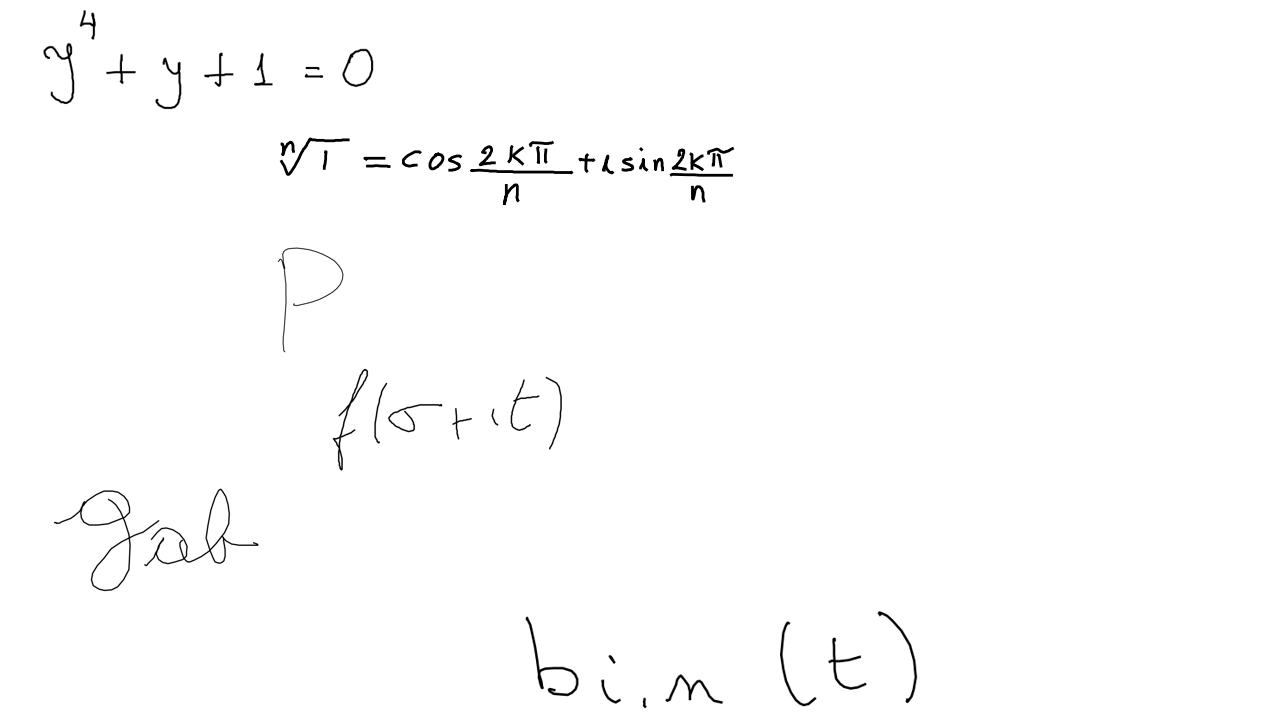 y⁴ + y + 1 = 0
ⁿ√1 = cos 2kπ/n + i sin 2kπ/n
P
f(σ + it)
gab
bi,n (t)